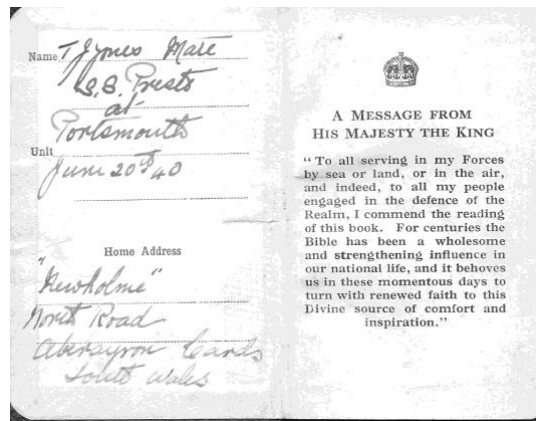 Name T J Jones Mate
S.S. Presto
at
Portsmouth
Unit
June 20th 40
Home Address
"Newholme"
North Road
Aberayron Cards
South Wales
A MESSAGE FROM
HIS MAJESTY THE KING
"To all serving in my Forces
by sea or land, or in the air,
and indeed, to all my people
engaged in the defence of the
Realm, I commend the reading
of this book. For centuries the
Bible has been a wholesome
and strengthening influence in
our national life, and it behoves
us in these momentous days to
turn with renewed faith to this
Divine source of comfort and
inspiration."